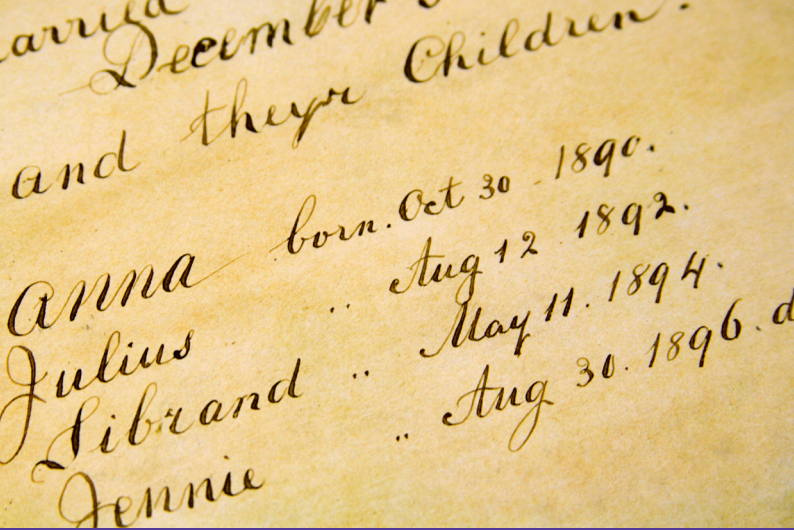 arried
December
and theyr Children.
Anna born. Oct 30. 1890.
Julius " Aug 12 1892.
Sibrand " May 11. 1894.
Jennie " Aug 30. 1896. d